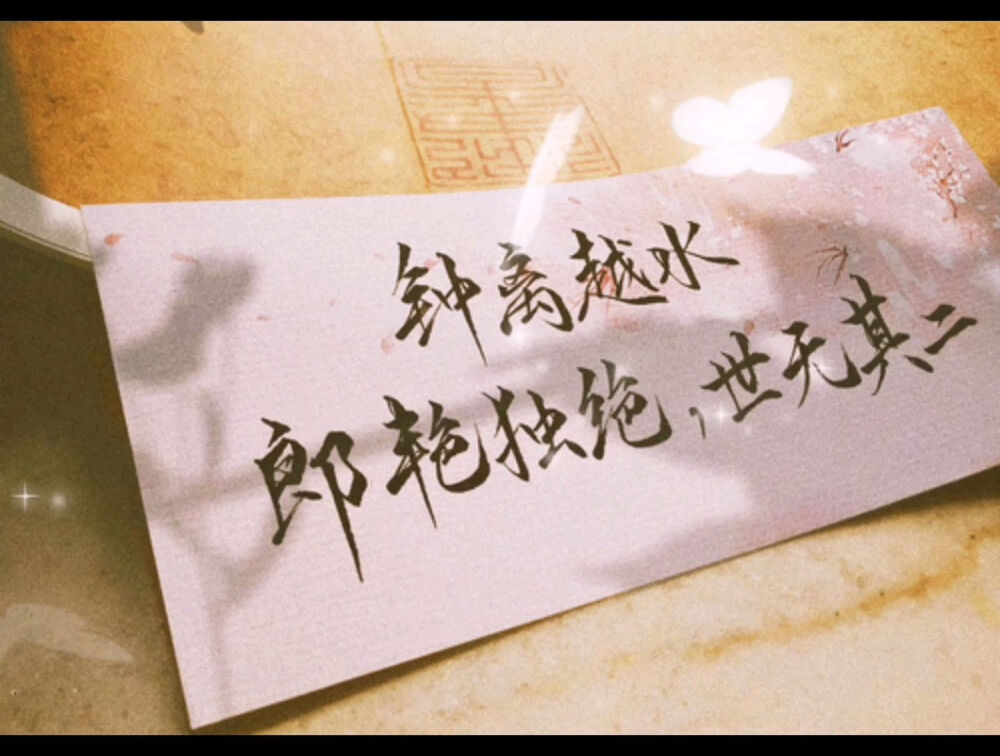 钟离越水
郎艳独绝，世无其二